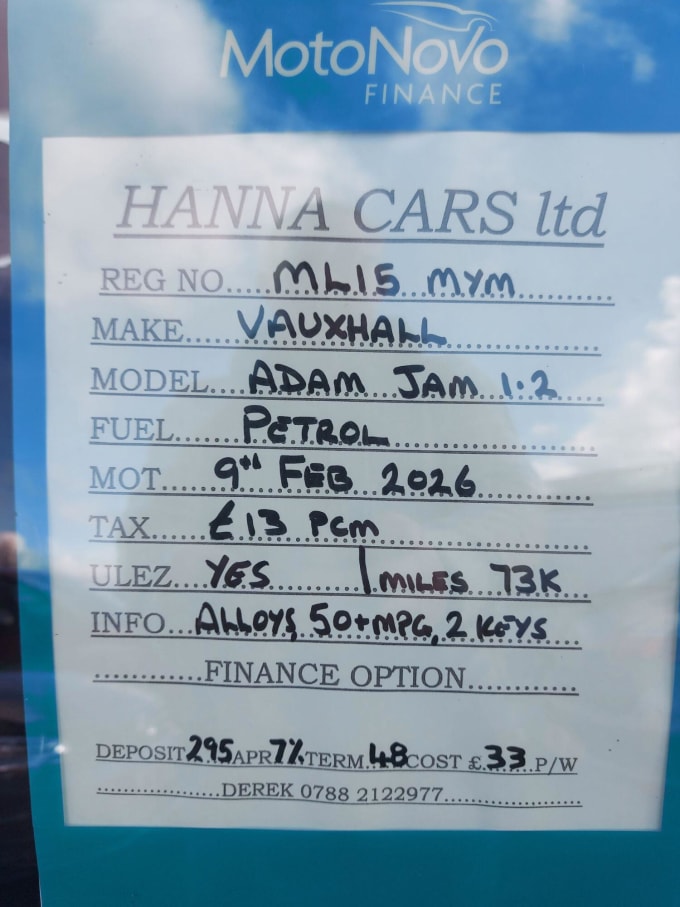 MotoNovo
FINANCE
HANNA CARS ltd
REG NO.....ML15 MYM...............
MAKE......VAUXHALL......................
MODEL....ADAM JAM 1.2......
FUEL.......PETROL............................
MOT.....9th FEB 2026................
TAX......£13 PCM..............................
ULEZ....YES............|MILES 73K
INFO...ALLOYS, 50+MPG, 2 KEYS....
..............FINANCE OPTION..............
DEPOSIT 295 APR 7% TERM 48 COST £ 33 P/W
..................DEREK 0788 2122977....................